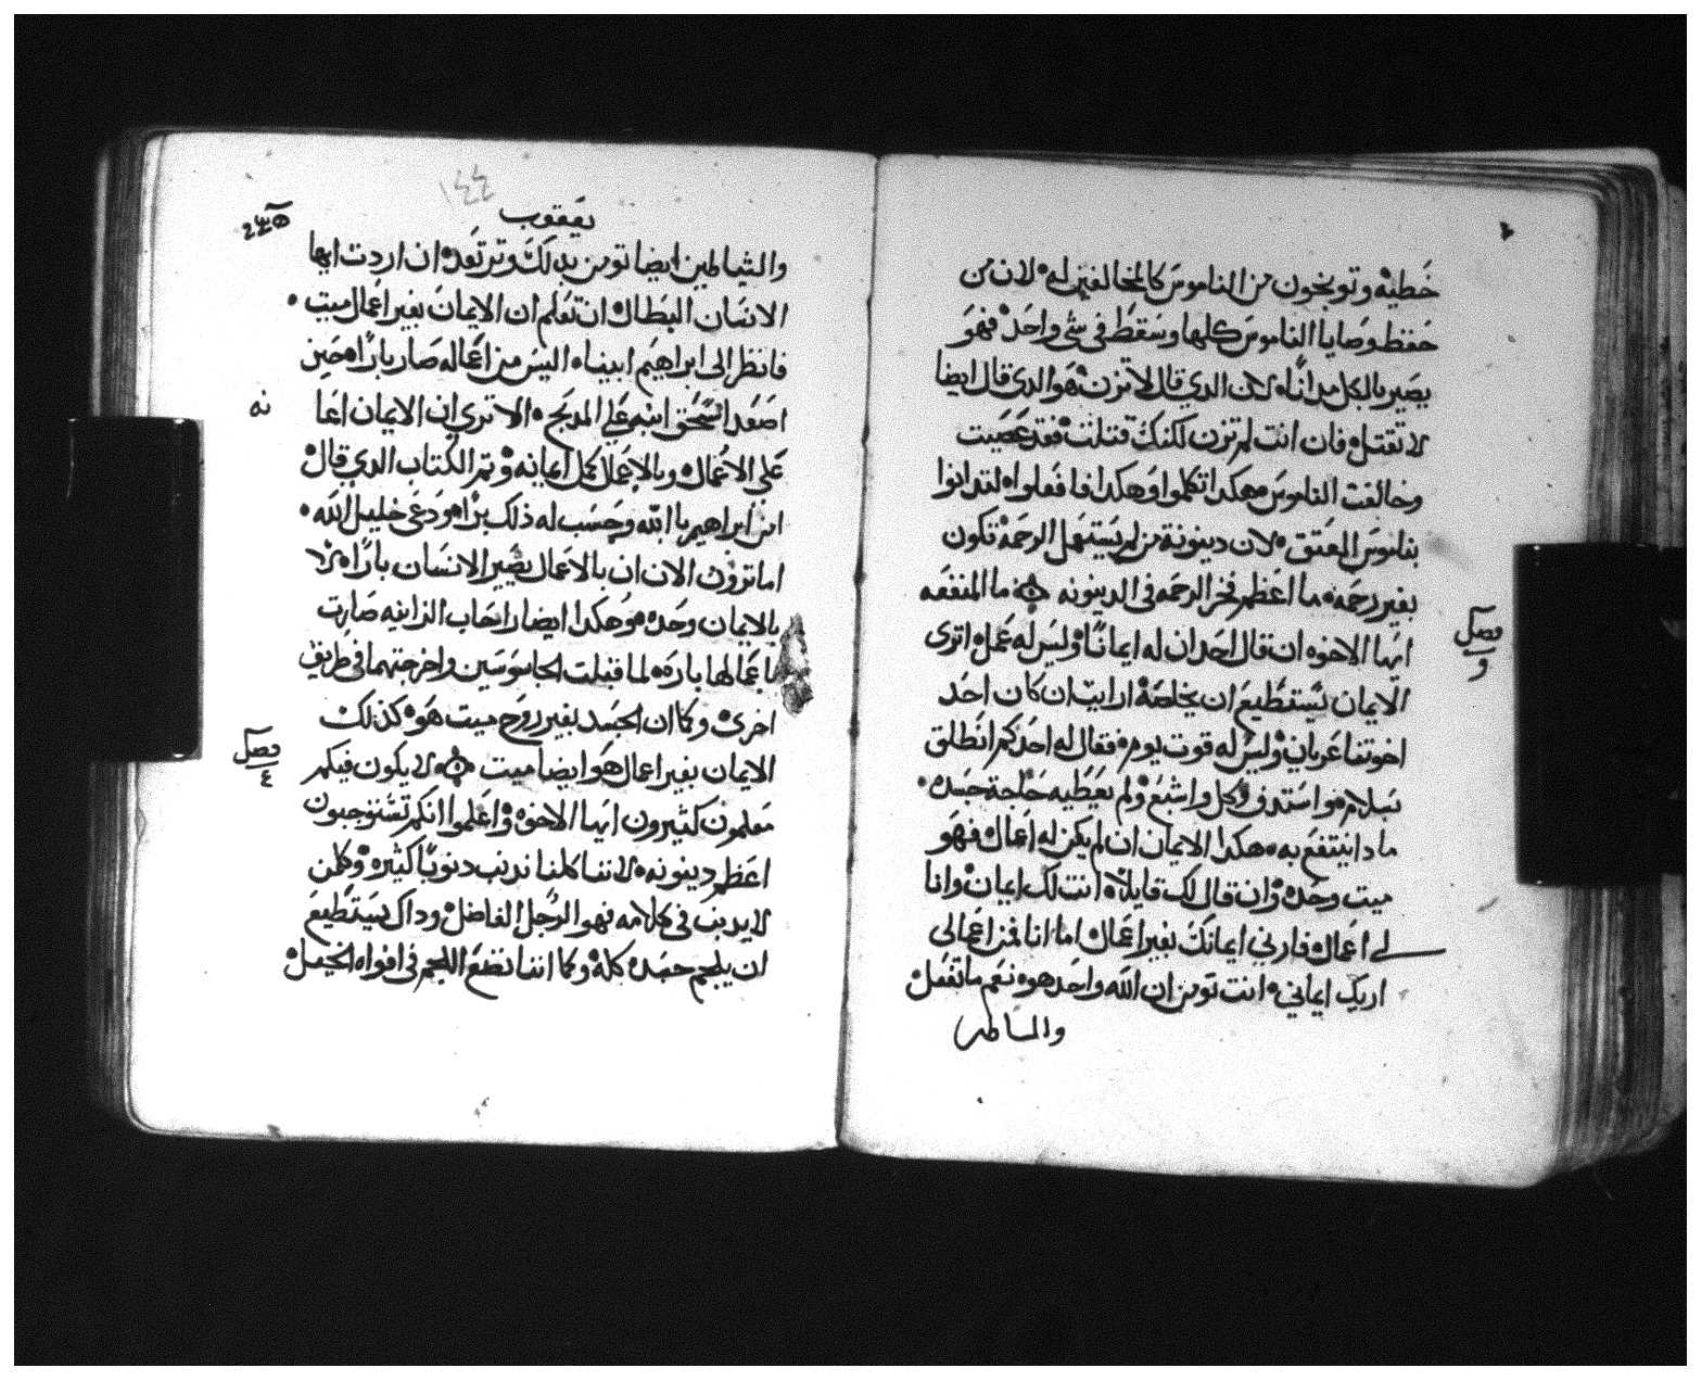 خطية وتوبخون من الناموس كالمخالفين له لان من
حفظ وصايا الناموس كلها وسقط في شي واحد فهو
يصير بالكل مدانًا لان الدي قال لا تزن هو الدي قال ايضا
لا تقتل فان انت لم تزن لكنك قتلت فقد عصيت
وخالفت الناموس هكدا تكلموا وهكدا فافعلوا
بناموس العتق لان دينونة من لم يستعمل الرحمة تكون
بغير رحمة ما اعظم فخر الرحمه في الدينونه ما المنفعه
فصل
و
ايها الاخوه ان قال احد ان له ايمانًا وليس له عمل اترى
الايمان يستطيع ان يخلصة ارايت ان كان احد
اخوتنا عريان وليس له قوت يوم فقال له احدكم انطلق
بسلام واستدف وكل واشبع ولم يعطيه حاجة جسده
مادا ينتفع به هكدا الايمان ان لم يكن له اعمال فهو
ميت وحده وان قال لك قايلا انت لك ايمان وانا
لي اعمال فارني ايمانك بغير اعمال اما انا فمن اعمالي
اريك ايماني انت تومن ان الله واحد هو نعم ما تفعل
١٤٤
يعقوب
والشياطين ايضا تومن بدلك وترتعد ان اردت ايها
الانسان البطال ان تعلم ان الايمان بغير اعمال ميت
فانظر الى ابراهيم ابينا اليس من اعماله صار بارًا حين
اصعد اسحق ابنه على المدبح الا ترى ان الايمان اعا
على الاعمال وبالاعمال كمل ايمانه وتم الكتاب الدي قال
امن ابراهيم بالله وحسب له ذلك برا ودعى خليل الله
اما ترون الان ان بالاعمال يصير الانسان بارًا لا
بالايمان وحده وهكدا ايضا راحاب الزانيه صارت
باعمالها باره لما قبلت الجاسوسين واخرجتهما في طريق
اخرى وكما ان الجسد بغير روح ميت هو كذلك
الايمان بغير اعمال هو ايضا ميت لا يكون فيكم
فصل
٤
معلمون كثيرون ايها الاخوه واعلموا انكم تستوجبون
اعظم دينونه لاننا كلنا ندنب دنوبًا كثيره وكلمن
لا يدنب في كلامه فهو الرجل الفاضل وداك يستطيع
ان يلجم جسده كله وكما اننا نضع اللجم في افواه الخيل